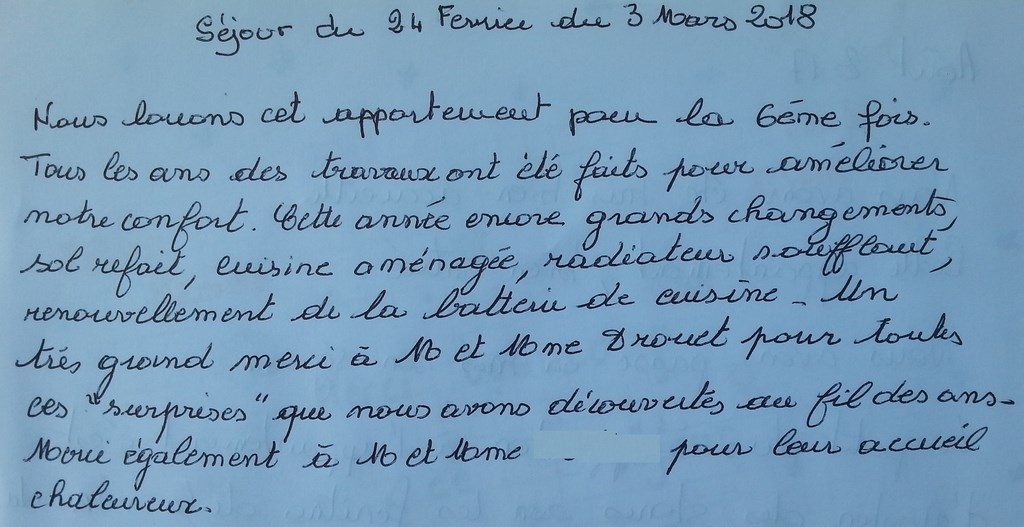 Séjour du 24 Fevrier du 3 Mars 2018
Nous louons cet appartement pour la 6ème fois.
Tous les ans des travaux ont été faits pour améliorer
notre confort. Cette année encore grands changements,
sol refait, cuisine aménagée, radiateur soufflant,
renouvellement de la batterie de cuisine - Un
très grand merci à M et Mme Drouet pour toutes
ces "surprises" que nous avons découvertes au fil des ans -
Merci également à M et Mme pour leur accueil
chaleureux.